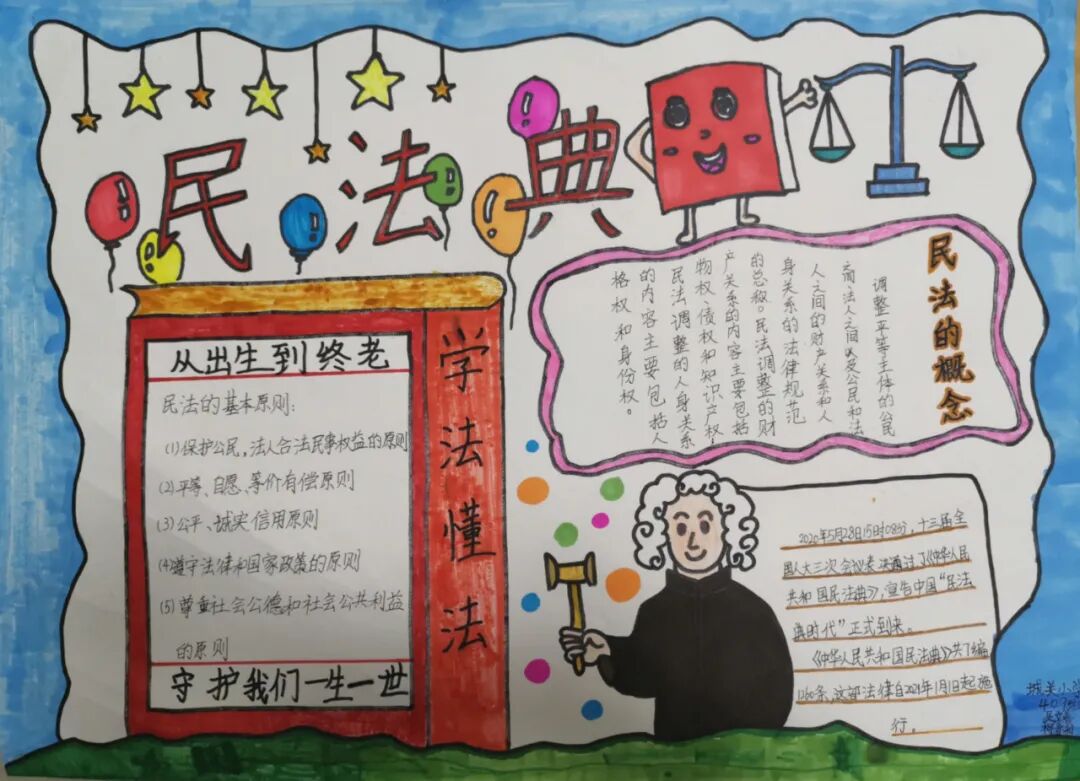 民法典
从出生到终老
民法的基本原则:
(1)保护公民,法人合法民事权益的原则
(2)平等、自愿、等价有偿原则
(3)公平、诚实信用原则
(4)遵守法律和国家政策的原则
(5)尊重社会公德和社会公共利益
的原则
守护我们一生一世
学法懂法
民法的概念
调整平等主体的公民
之间、法人之间以及公民和法
人之间的财产关系和人
身关系的法律规范
的总称。民法调整的财
产关系的内容主要包括
物权、债权和知识产权;
民法调整的人身关系
的内容主要包括人
格权和身份权。
2020年5月28日15时08分，十三届全
国人大三次会议表决通过了《中华人民
共和国民法典》，宣告中国“民法
典时代”正式到来。
《中华人民共和国民法典》共7编
1260条,这部法律自2021年1月1日起施
行。
城关小学